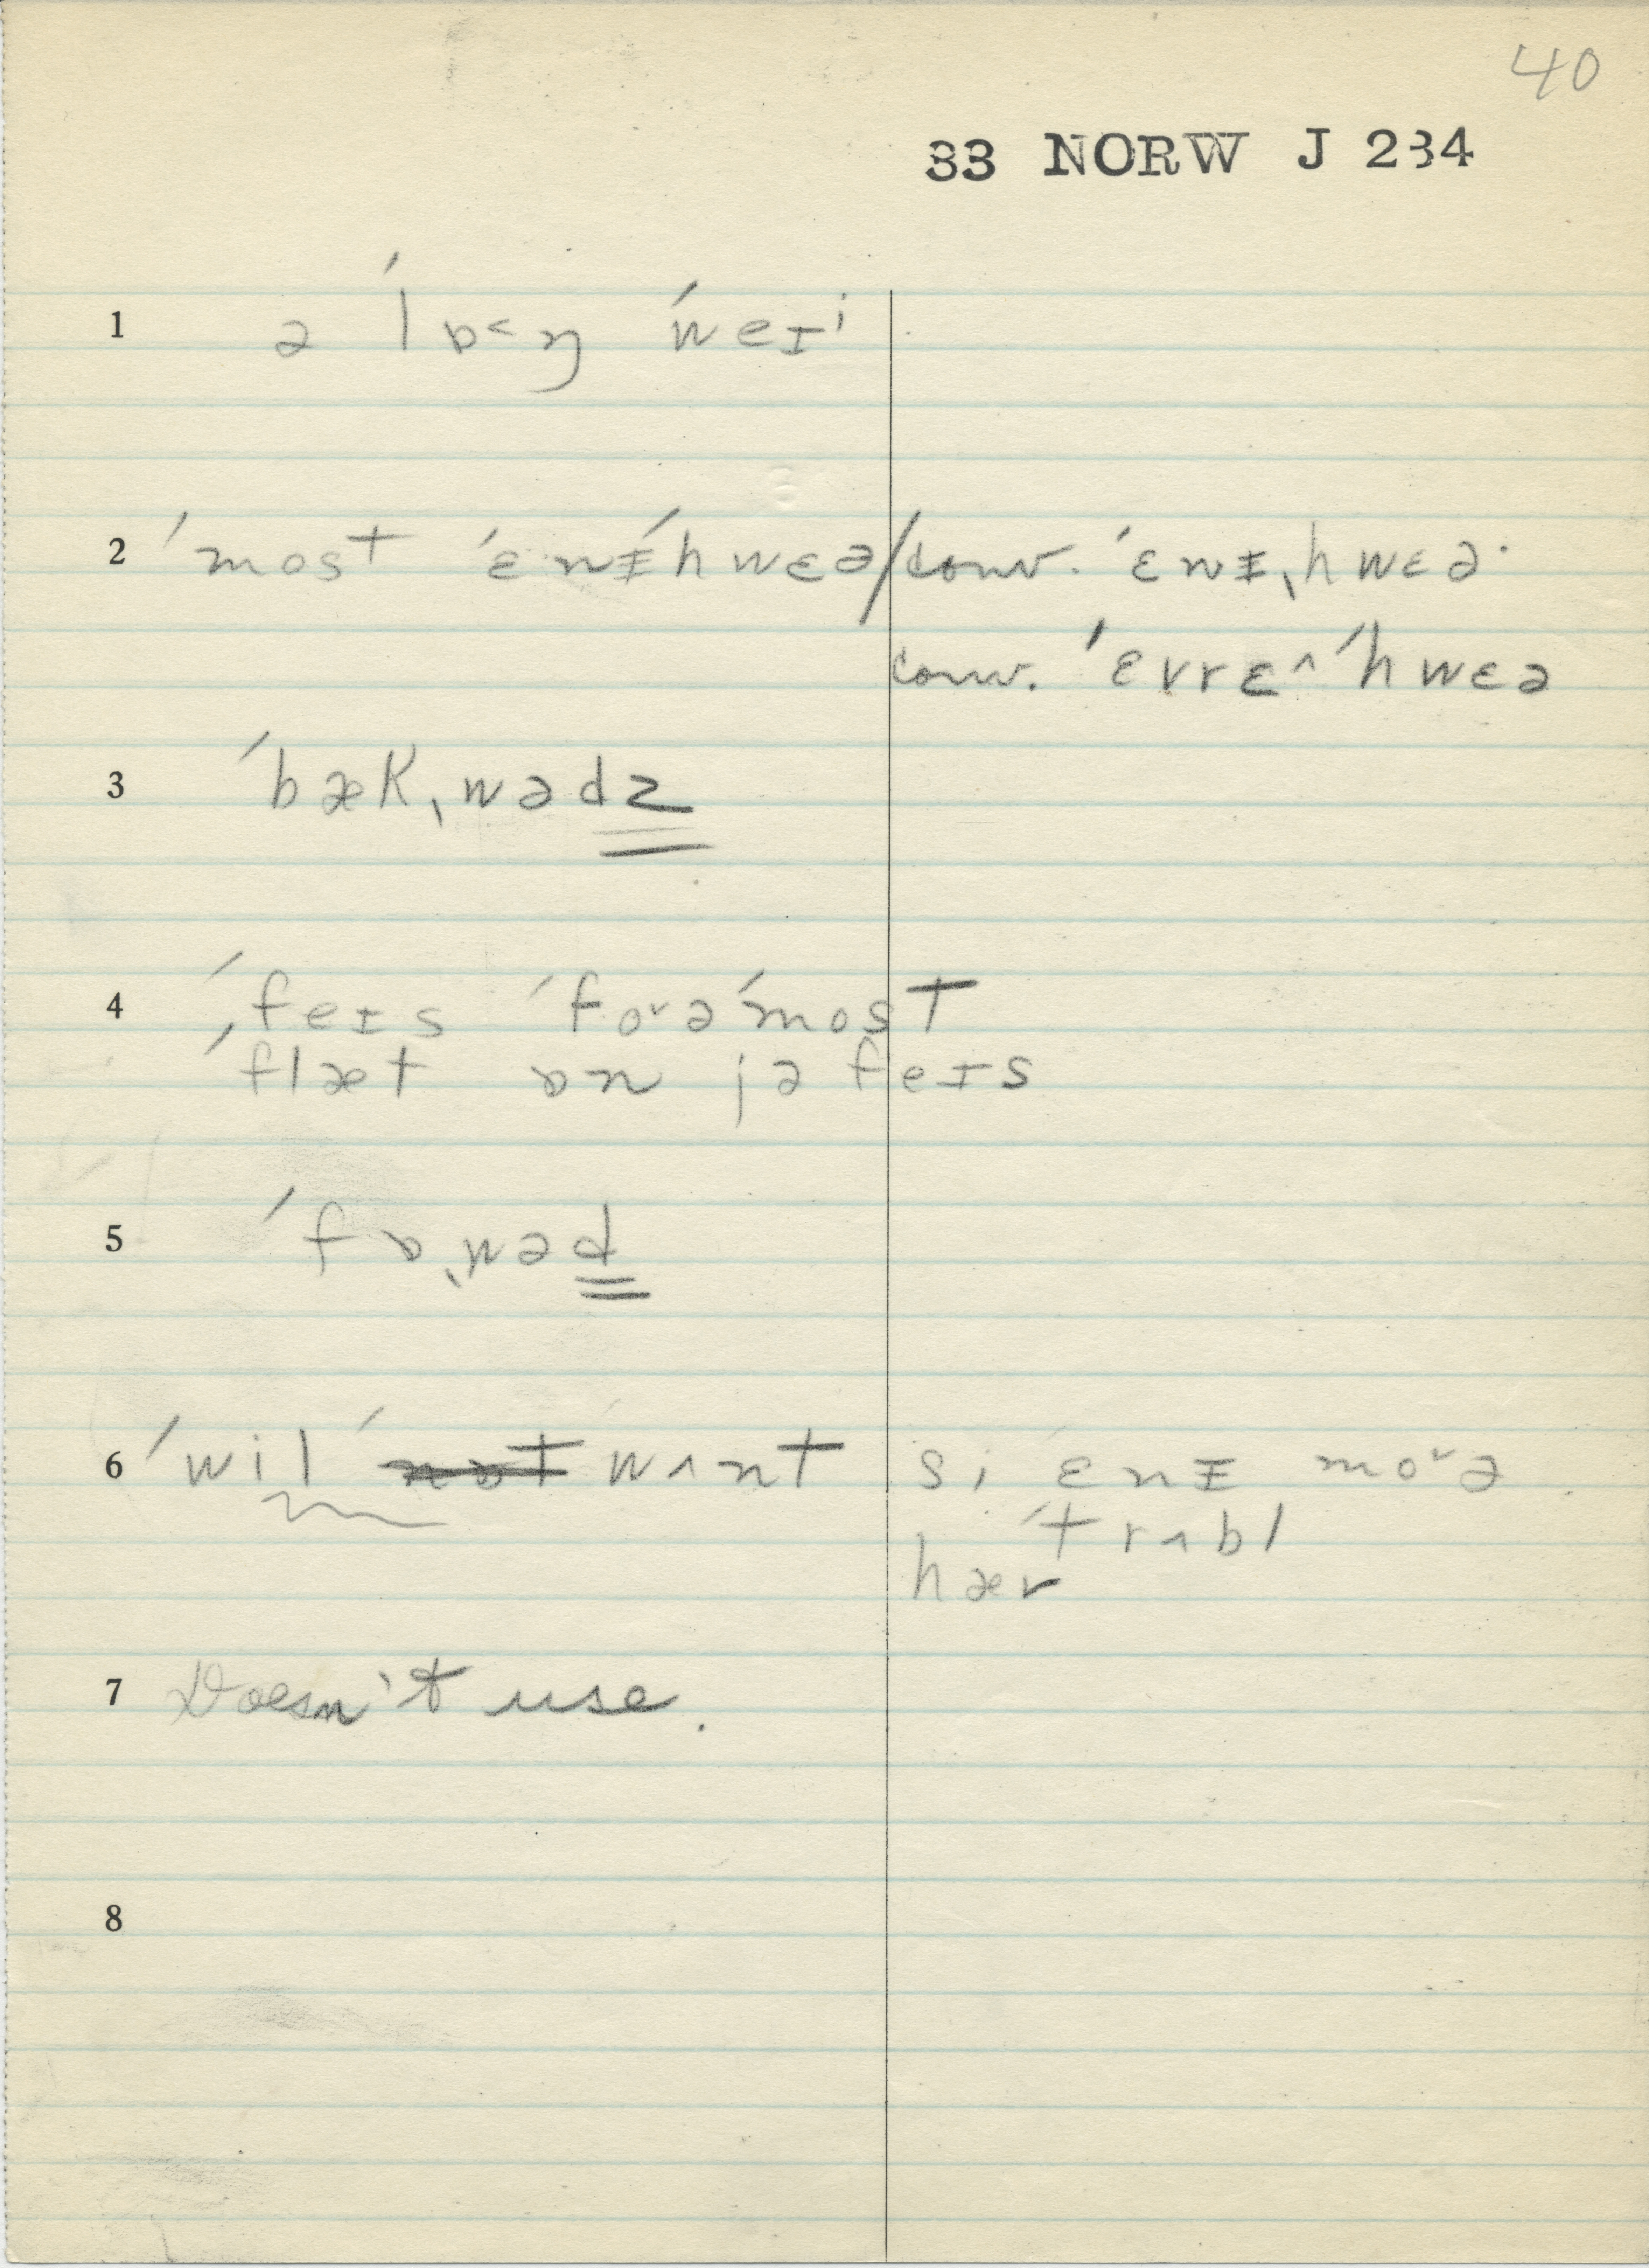 40
33 NORW J 234
1 ə ˈlɒ˂ŋ ˈweɪⁱ
2 ˈmost ˈɛnɪˈhwɛə / conv. ˈɛnɪˌhwɛə·
conv. ˈɛvrɛ^ ˈhwɛə
3 ˈbækˌwədz
4 ˈfeɪs ˈfo˅əˈmost
ˈflæt ɒn jə feɪs
5 ˈfɒˌwəd
6 ˈwil ˈnɒt wʌnt si ɛnɪ mo˅ə
ˈtrʌbl
hær
7 Doesn't use.
8